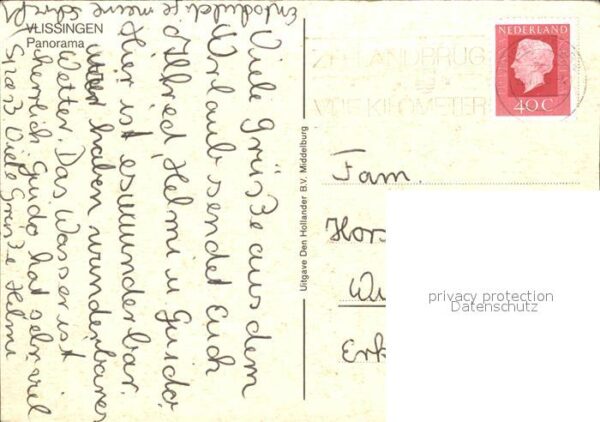 VLISSINGEN
Panorama
Viele Grüße aus dem
Urlaub sendet Euch
Alfred, Helmi u Guido
Hier ist es wunderbar.
wir haben wunderbares
Wetter. Das Wasser ist
herrlich Guido hat sehr viel
Spaß Viele Grüße Helmi
meine Schrift
Uitgave Den Hollander B.V. Middelburg
ZEELANDBRUG
VIJF KILOMETER
NEDERLAND
40 C
Fam.
Hors
Erk
privacy protection
Datenschutz